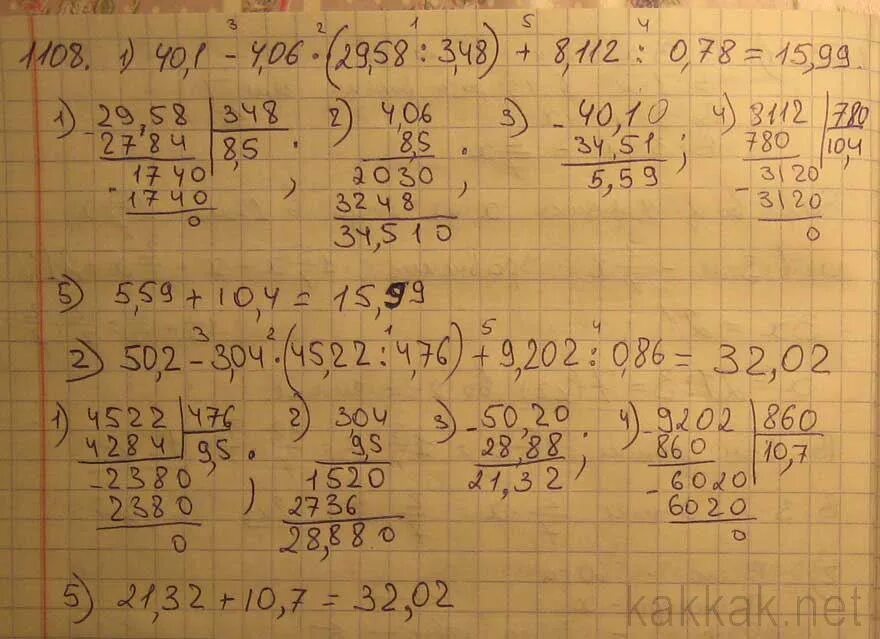 1108. 1) 40,1 - 4,06 · (29,58 : 3,48) + 8,112 : 0,78 = 15,99.
3 2 1 5 4
1) 29,58 | 348
2784 | 8,5
1740
1740
0
2) 4,06
8,5
2030
3248
34,510
3) 40,10
34,51
5,59
4) 8112 | 780
780 | 10,4
3120
3120
0
5) 5,59 + 10,4 = 15,99
3 2 1 5 4
2) 50,2 - 3,04 · (45,22 : 4,76) + 9,202 : 0,86 = 32,02
1) 4522 | 476
4284 | 9,5
2380
2380
0
2) 3,04
9,5
1520
2736
28,880
3) 50,20
28,88
21,32
4) 9202 | 860
860 | 10,7
6020
6020
0
5) 21,32 + 10,7 = 32,02
kakkak.net